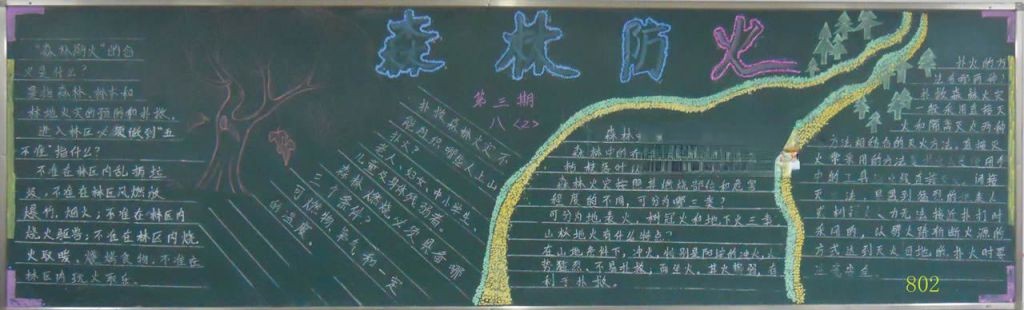 森林防火
第三期
八〈2〉
"森林防火"的含
义是什么?
是指森林、林木和
林地火灾的预防和扑救。
进入林区必须做到"五
不准"指什么?
不准在林区内乱扔烟
不准在林区风燃放
爆竹、烟火;不准在林区内
烧火驱兽;不准在林区内烧
火取暖、烧烤食物;不准在
林区内玩火取乐。
扑救森林火灾不
能组织哪些人上山
扑火?
老人、妇女、中小学生、
儿童及身体残弱者。
森林燃烧必须具备哪
三个条件?
可燃物、氧气和一定
的温度。
森林
森林火灾按照其燃烧部位和危害
程度的不同,可分为哪三类?
可分为地表火、树冠火和地下火三类
山林地火有什么特点?
在山地条件下,冲火,特别是阳坡的冲火,
势猛烈、不易扑救,而坐火,其火势弱,有
利于扑救。
扑火的方
法有哪两种?
扑救森林火灾
一般采用直接灭
火和隔离灭火两种
方法相结合的灭火方法,直接灭
火常采用的方法
中的工具
采用的,以开火路切断火源的
方式达到灭火目地的,扑火时要
注意安全。
802